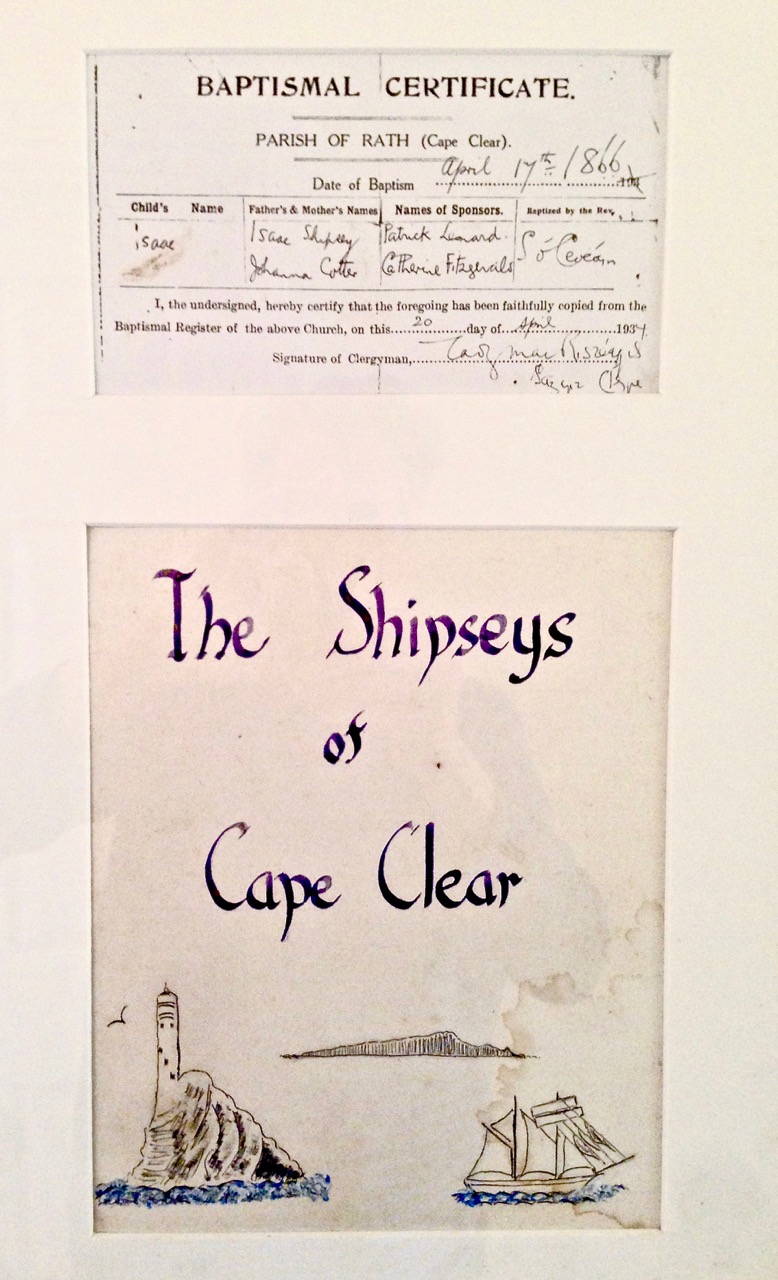 BAPTISMAL CERTIFICATE.
PARISH OF RATH (Cape Clear).
Date of Baptism April 17th 1866
Child's Name Father's & Mother's Names Names of Sponsors. Baptized by the Rev.
Isaac Isaac Shipsey Patrick Leonard.
Johanna Cotter Catherine Fitzgerald
I, the undersigned, hereby certify that the foregoing has been faithfully copied from the
Baptismal Register of the above Church, on this 20 day of April 1934
Signature of Clergyman,
The Shipseys
of
Cape Clear